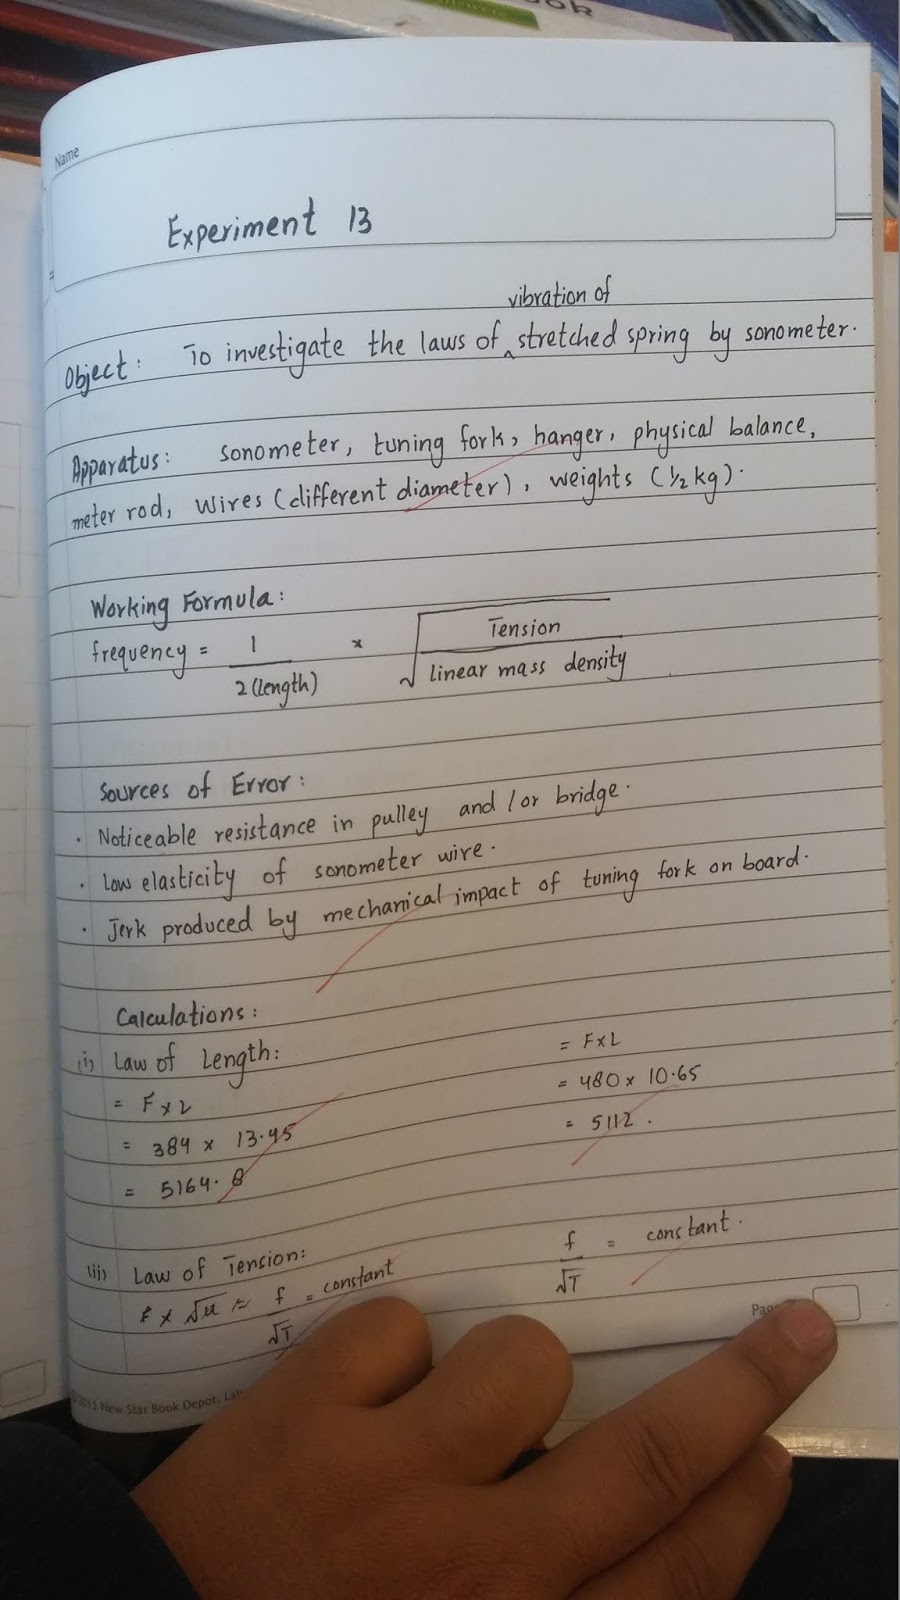 OOK
Name
Experiment 13
vibration of
Object: To investigate the laws of ^ stretched spring by sonometer.
Apparatus: sonometer, tuning fork, hanger, physical balance,
meter rod, wires (different diameter), weights (1/2 kg).
Working Formula:
frequency = 1 / 2(length) × √(Tension / linear mass density)
Sources of Error:
· Noticeable resistance in pulley and/or bridge.
· Low elasticity of sonometer wire.
· Jerk produced by mechanical impact of tuning fork on board.
Calculations:
(i) Law of Length:
= F×L
= 384 × 13.45
= 5164.8
= F×L
= 480 × 10.65
= 5112.
(ii) Law of Tension:
f / √T = constant
f / √T = constant.
©2015 New Star Book Depot, Lah